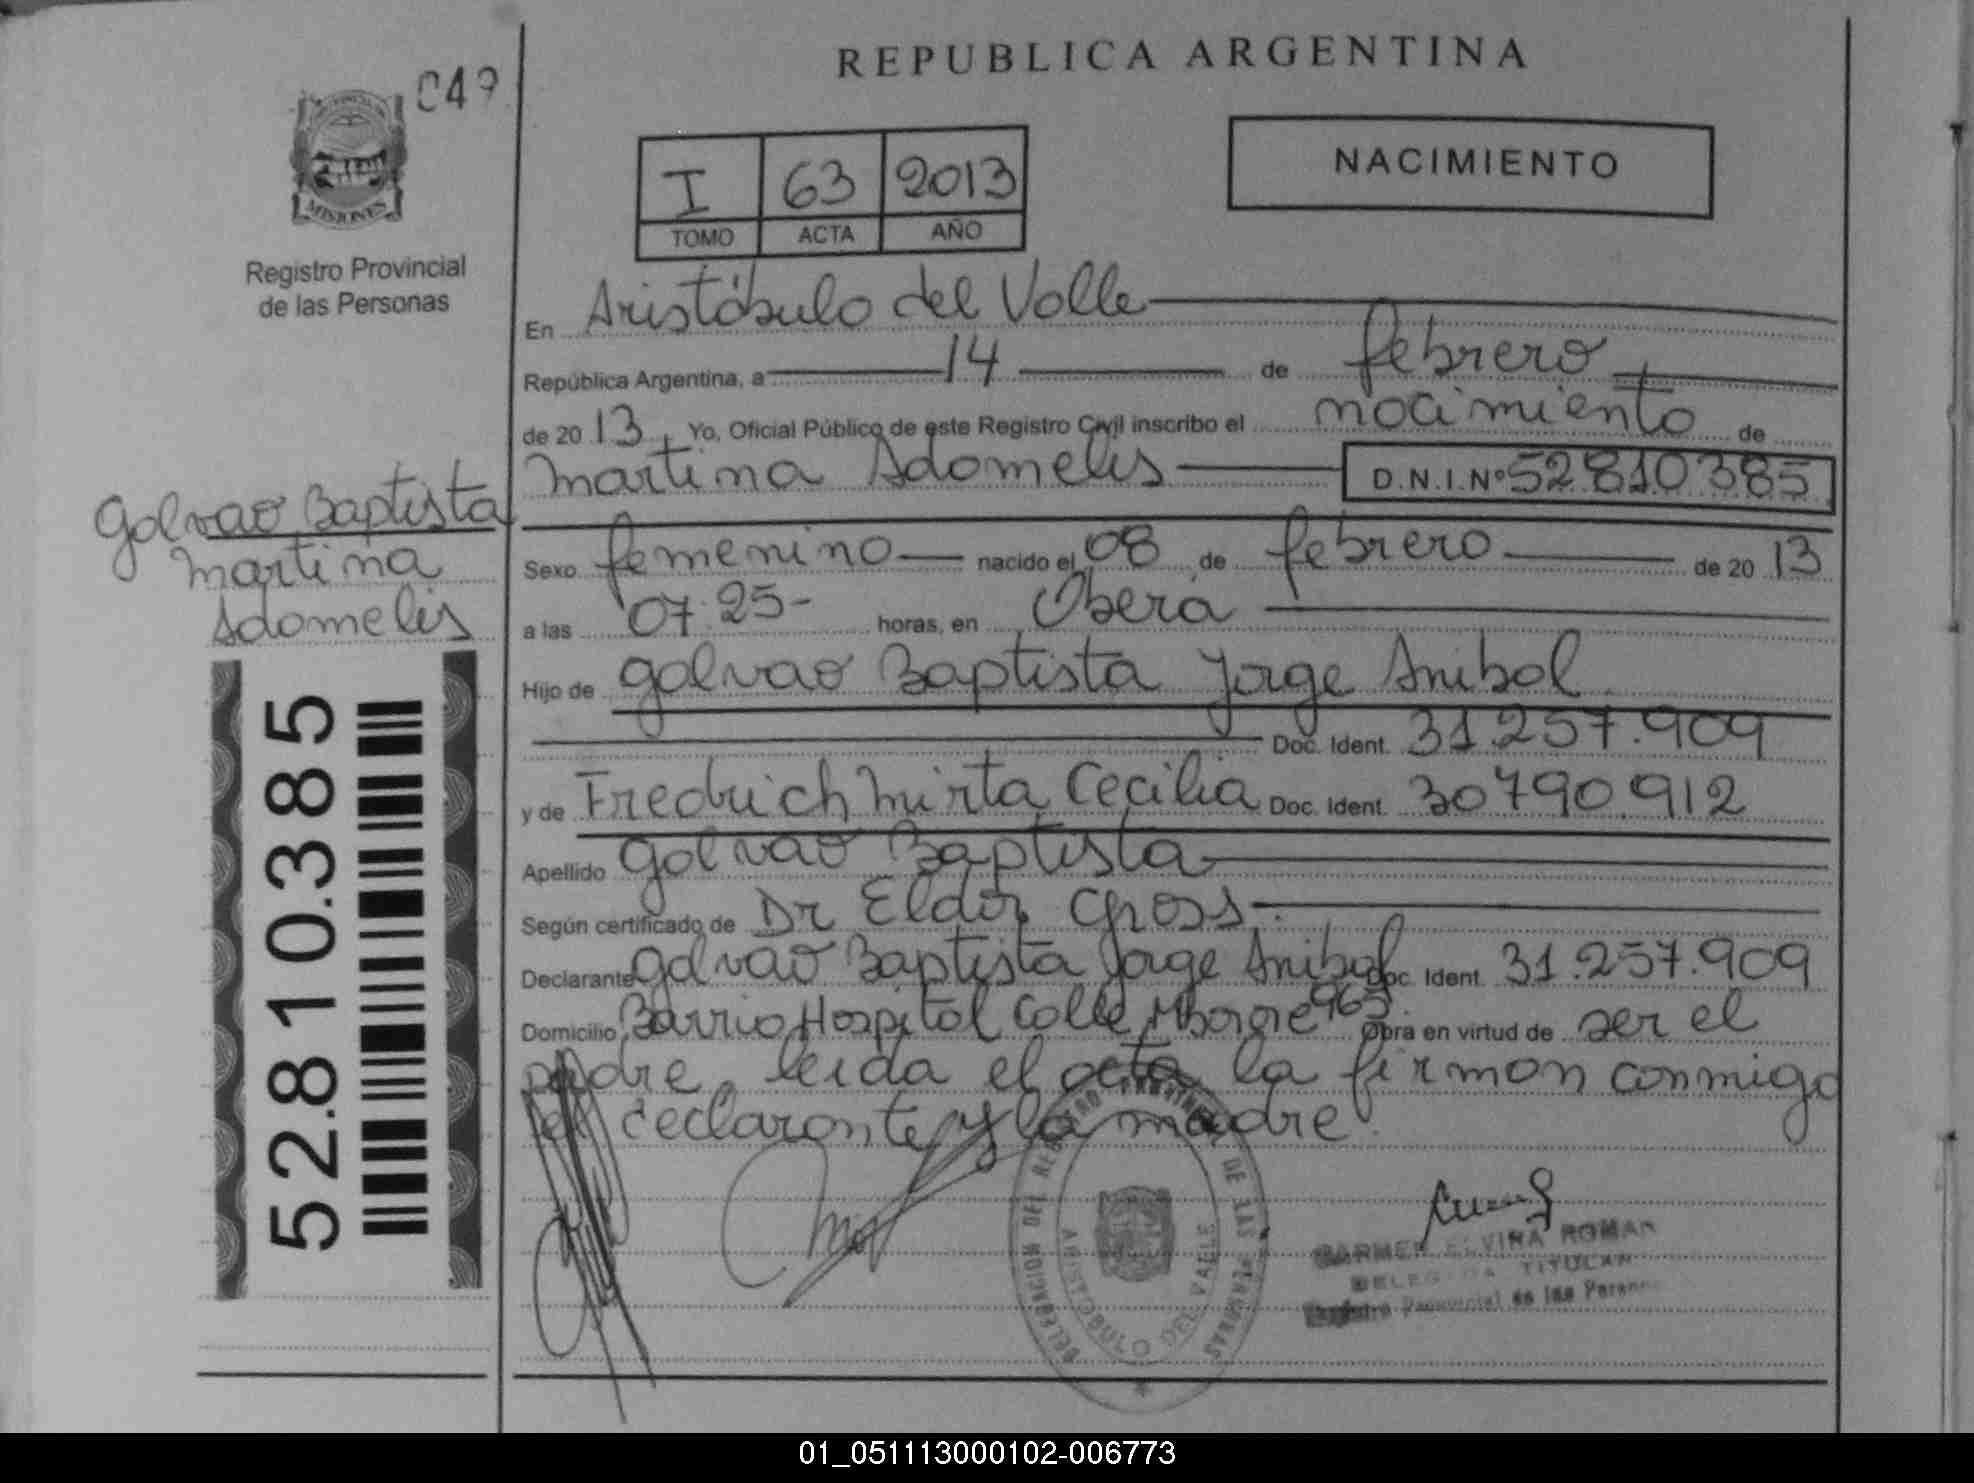 049
PROVINCIA DE
MISIONES
Registro Provincial
de las Personas
REPUBLICA ARGENTINA
I 63 2013
TOMO ACTA AÑO
NACIMIENTO
En Aristóbulo del Valle
República Argentina, a 14 de febrero
de 20 13, Yo, Oficial Público de este Registro Civil inscribo el nacimiento de
Martina Adomelis D.N.I.Nº 52810385
Galvao Baptista
Martina
Adomelis
52.810.385
Sexo femenino nacido el 08 de febrero de 20 13
a las 07:25- horas, en Oberá
Hijo de Galvao Baptista Jorge Anibal
Doc. Ident. 31.257.909
y de Fredrich Mirta Cecilia Doc. Ident. 30790.912
Apellido Galvao Baptista
Según certificado de Dr Eldor Gross.
Declarante Galvao Baptista Jorge Anibal Doc. Ident. 31.257.909
Domicilio Barrio Hospital Calle 963 Obra en virtud de ser el
padre, leida el acta la firman conmigo
el declarante y la madre.
DELEGACION DEL REGISTRO PROVINCIAL DE LAS PERSONAS
ARISTOBULO DEL VALLE
CARMEN ELVIRA ROMAN
DELEGADA TITULAR
Registro Provincial de las Personas
01_051113000102-006773